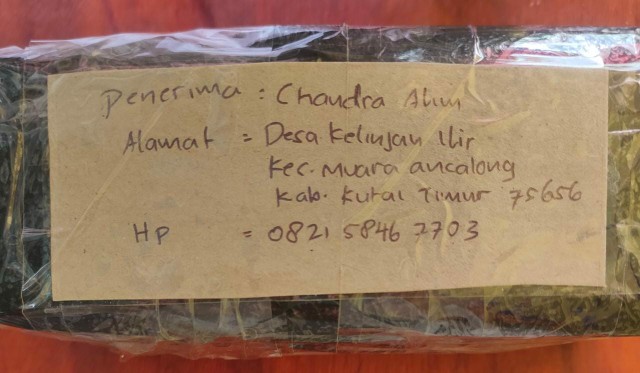 Penerima : Chandra Alim
Alamat = Desa Kelinjau Ilir
Kec. Muara ancalong
Kab. Kutai Timur 75656
HP = 0821 5846 7703